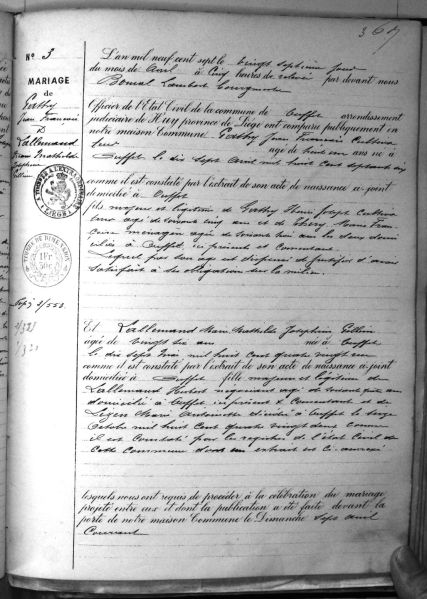 367
N° 3
MARIAGE
de
Gerthy
Jean François
&
Lallemand
Marie Mathilde
Joséphine
L'an mil neuf cent sept le vingt septième jour
du mois de Avril à Cinq heures de relevée par devant nous
Lambert
Officier de l'Etat Civil de la commune de Ouffet arrondissement
judiciaire de Huy province de Liége ont comparu publiquement en
notre maison Commune Gerthy Jean François Cultiva
teur âgé de huit ans né à
Ouffet le dix sept Avril mil huit cent septante
comme il est constaté par l'extrait de son acte de naissance ci-joint
domicilié à Ouffet
fils majeur et légitime de Gerthy Henri Joseph Cultiva
teur âgé de soixante cinq ans et de Marie Fran
çoise ménagère âgée de soixante huit ans les deux domi
ciliés à Ouffet, ici présents et consentants
Lequel par son âge est dispensé de justifier d'avoir
satisfait à ses obligations sur la milice.
TIMBRE DE DIMENSION
1 Fr
Et Lallemand Marie Mathilde Joséphine
âgée de vingt six ans née à Ouffet
le dix sept Mai mil huit cent quatre vingt un
comme il est constaté par l'extrait de son acte de naissance ci-joint
domiciliée à Ouffet fille majeure et légitime de
Lallemand Hubert négociant âgé de soixante ans
domicilié à Ouffet ici présent & consentant et de
Marie Antoinette décédée à Ouffet le treize
Octobre mil huit cent quatre vingt douze comme
il est constaté par les registres de l'état Civil de
cette commune dont un extrait est ci-annexé
lesquels nous ont requis de procéder à la célébration du mariage
projeté entre eux et dont la publication a été faite devant la
porte de notre maison Commune le Dimanche sept avril
Courant